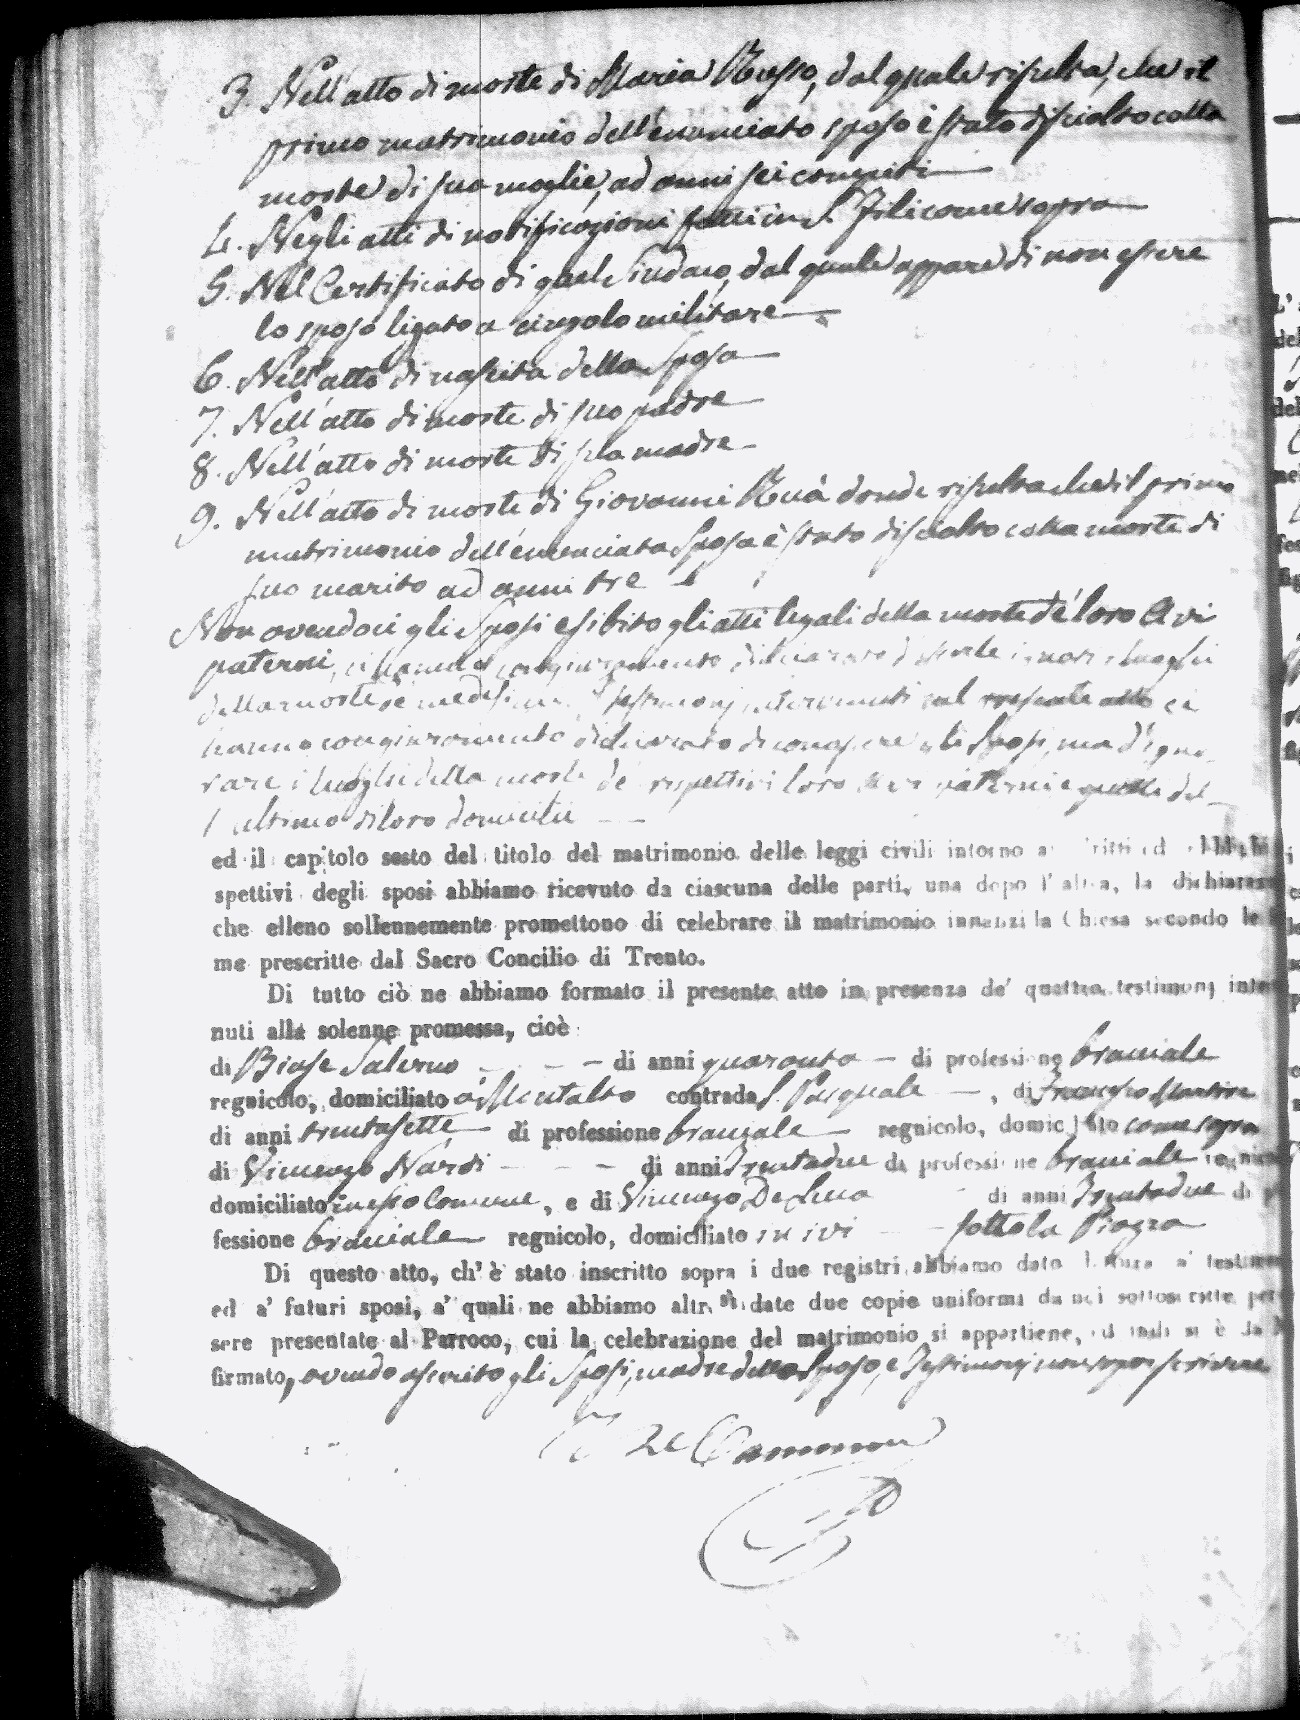 3. Nell'atto di morte di Maria Russo, dal quale risulta, che il
primo matrimonio dell'enunciato sposo è stato disciolto colla
morte di sua moglie, ad anni sei compiti
4. Negli atti di notificazioni fatti in S. Fili come sopra
5. Nel Certificato di quel Sindaco, dal quale appare di non essere
lo sposo ligato a cingolo militare
6. Nell'atto di nascita della Sposa
7. Nell'atto di morte di suo padre
8. Nell'atto di morte di sua madre
9. Nell'atto di morte di Giovanni Ruà donde risulta che il primo
matrimonio dell'enunciata Sposa è stato disciolto colla morte di
suo marito ad anni tre
Non avendoci gli Sposi esibito gli atti legali della morte de' loro Avi
paterni, ci hanno con giuramento dichiarato i luoghi
della morte de' medesimi. I testimonj intervenuti nel presente atto ci
hanno con giuramento dichiarato di conoscere gli Sposi, ma d'igno-
rare i luoghi della morte de' rispettivi loro Avi paterni e quelli del-
l'ultimo di loro domicilio
ed il capitolo sesto del titolo del matrimonio delle leggi civili intorno a' dritti ed obblighi
spettivi degli sposi abbiamo ricevuto da ciascuna delle parti, una dopo l'altra, la dichiaraz
che elleno sollennemente promettono di celebrare il matrimonio innanzi la Chiesa secondo le
me prescritte dal Sacro Concilio di Trento.
Di tutto ciò ne abbiamo formato il presente atto in presenza de' quattro testimonj inter
nuti alla solenne promessa, cioè
di Biase Salerno di anni quaranta di professione bracciale
regnicolo, domiciliato a Montalto contrada S. Pasquale, di Francesco Martire
di anni trentasette di professione bracciale regnicolo, domiciliato come sopra
di Vincenzo Nardi di anni Trentadue di professione bracciale regnico
domiciliato in esso Comune, e di Vincenzo De Luca di anni Trentadue di p
fessione bracciale regnicolo, domiciliato in ivi sotto la Piazza
Di questo atto, ch' è stato inscritto sopra i due registri abbiamo dato lettura a' testimo
ed a' futuri sposi, a' quali ne abbiamo altresì date due copie uniformi da noi sottoscritte per
sere presentate al Parroco, cui la celebrazione del matrimonio si appartiene, ed indi si è da
firmato, avendo asserito gli Sposi, madre dello Sposo, e Testimonj non saper scrivere